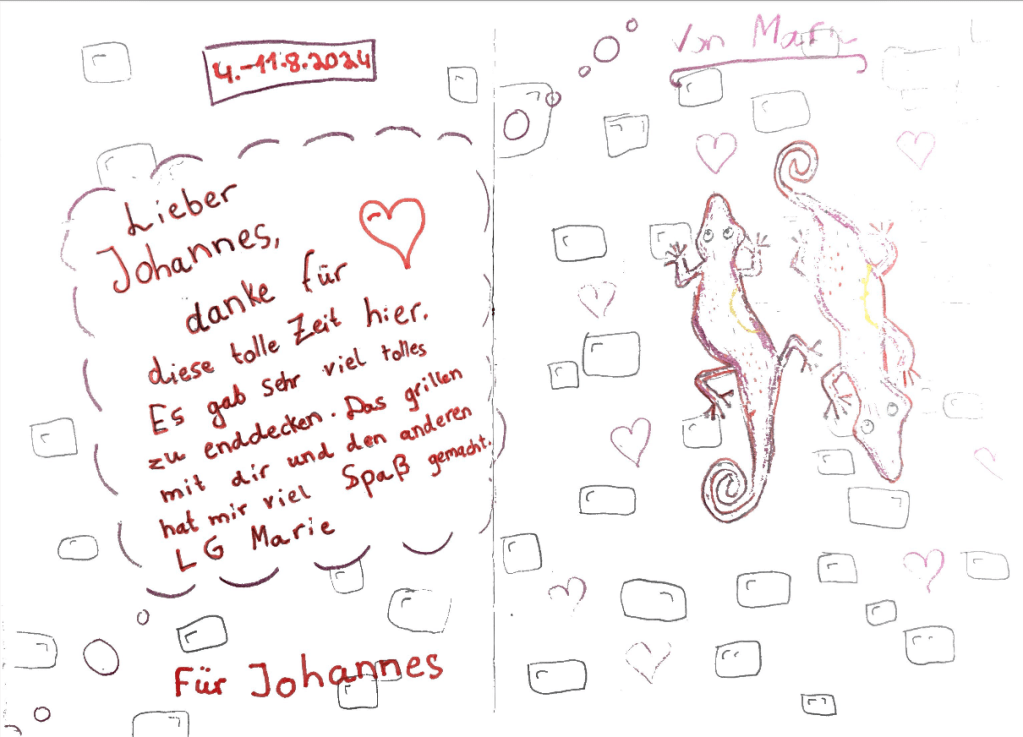 4.-11.8.2024
Lieber
Johannes,
danke für
diese tolle Zeit hier.
Es gab sehr viel tolles
zu enddecken. Das grillen
mit dir und den anderen
hat mir viel Spaß gemacht.
LG Marie
Für Johannes
Von Marie